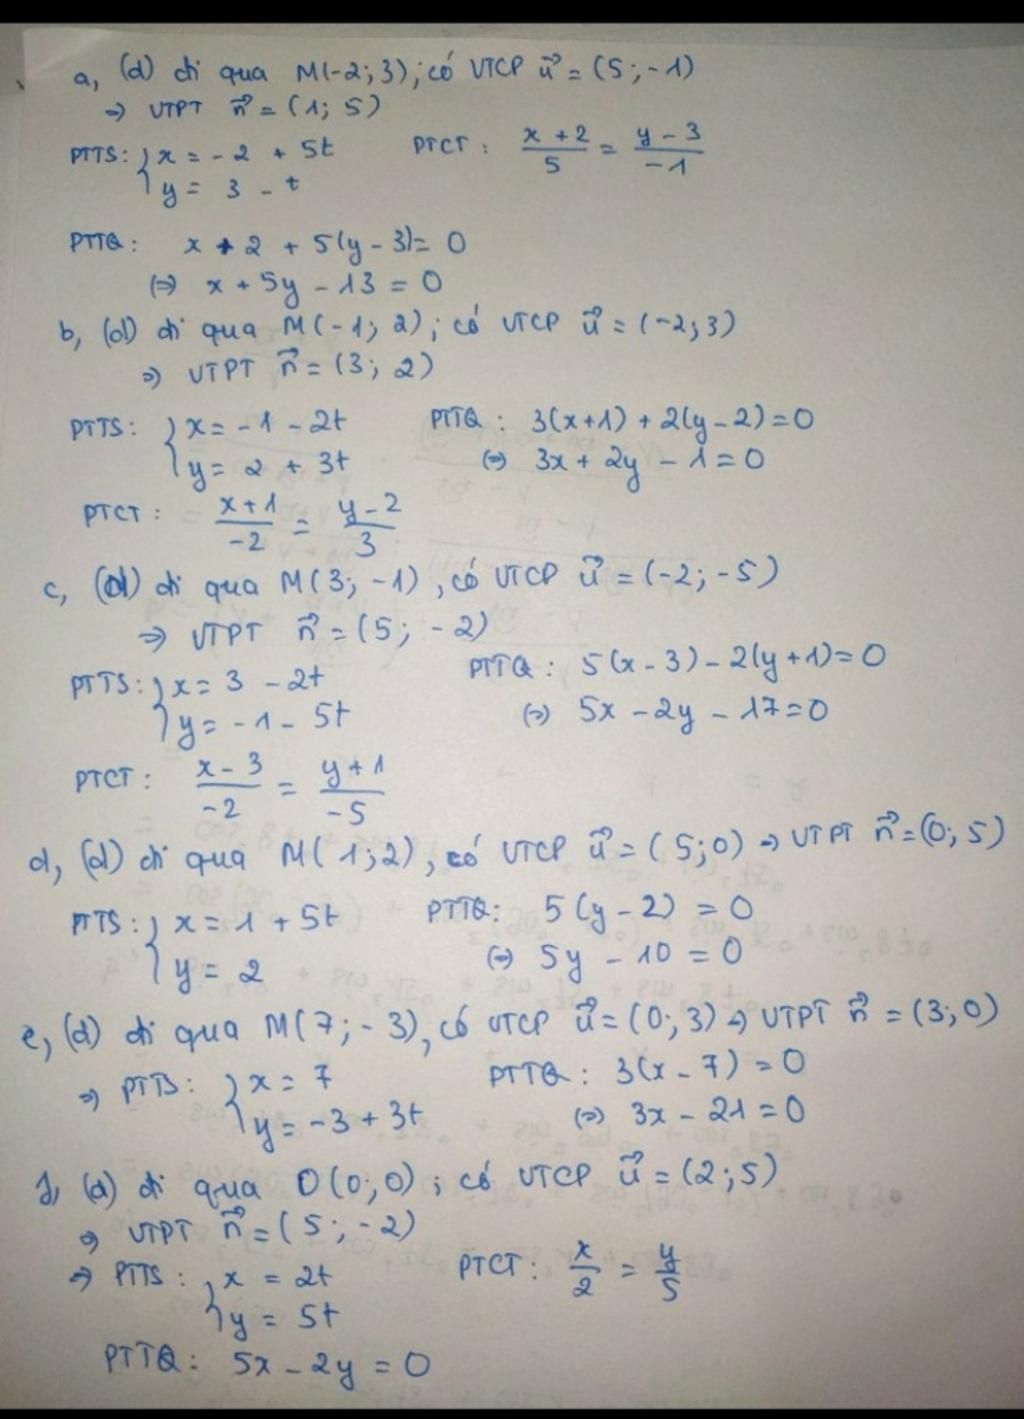 a, (d) đi qua M(-2; 3); có VTCP u⃗ = (5; -1)
=> VTPT n⃗ = (1; 5)
PTTS: { x = -2 + 5t   PTCT: (x + 2)/5 = (y - 3)/-1
y = 3 - t
PTTQ: x + 2 + 5(y - 3) = 0
(=) x + 5y - 13 = 0
b, (d) đi qua M(-1; 2); có VTCP u⃗ = (-2; 3)
=> VTPT n⃗ = (3; 2)
PTTS: { x = -1 - 2t   PTTQ: 3(x+1) + 2(y-2) = 0
y = 2 + 3t   (=) 3x + 2y - 1 = 0
PTCT: (x+1)/-2 = (y-2)/3
c, (d) đi qua M(3; -1), có VTCP u⃗ = (-2; -5)
=> VTPT n⃗ = (5; -2)
PTTS: { x = 3 - 2t   PTTQ: 5(x - 3) - 2(y+1) = 0
y = -1 - 5t   (=) 5x - 2y - 17 = 0
PTCT: (x - 3)/-2 = (y + 1)/-5
d, (d) đi qua M(1; 2), có VTCP u⃗ = (5; 0) => VTPT n⃗ = (0; 5)
PTTS: { x = 1 + 5t   PTTQ: 5(y - 2) = 0
y = 2   (=) 5y - 10 = 0
e, (d) đi qua M(7; -3), có VTCP u⃗ = (0; 3) => VTPT n⃗ = (3; 0)
=> PTTS: { x = 7   PTTQ: 3(x - 7) = 0
y = -3 + 3t   (=) 3x - 21 = 0
f, (d) đi qua O(0; 0); có VTCP u⃗ = (2; 5)
=> VTPT n⃗ = (5; -2)
=> PTTS: { x = 2t   PTCT: x/2 = y/5
y = 5t
PTTQ: 5x - 2y = 0